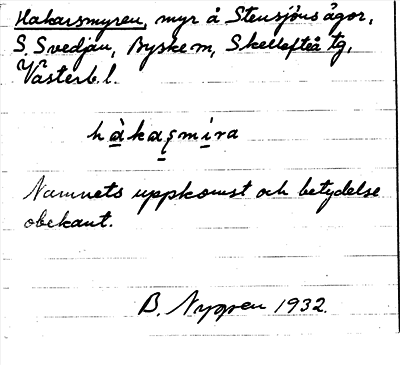 Hakarsmyren, myr å Stensjöns ägor,
S. Svedjan, Byske m, Skellefteå tg,
Västerb. l.
hàkaşmira
Namnets uppkomst och betydelse
obekant.
B. Nygren 1932.